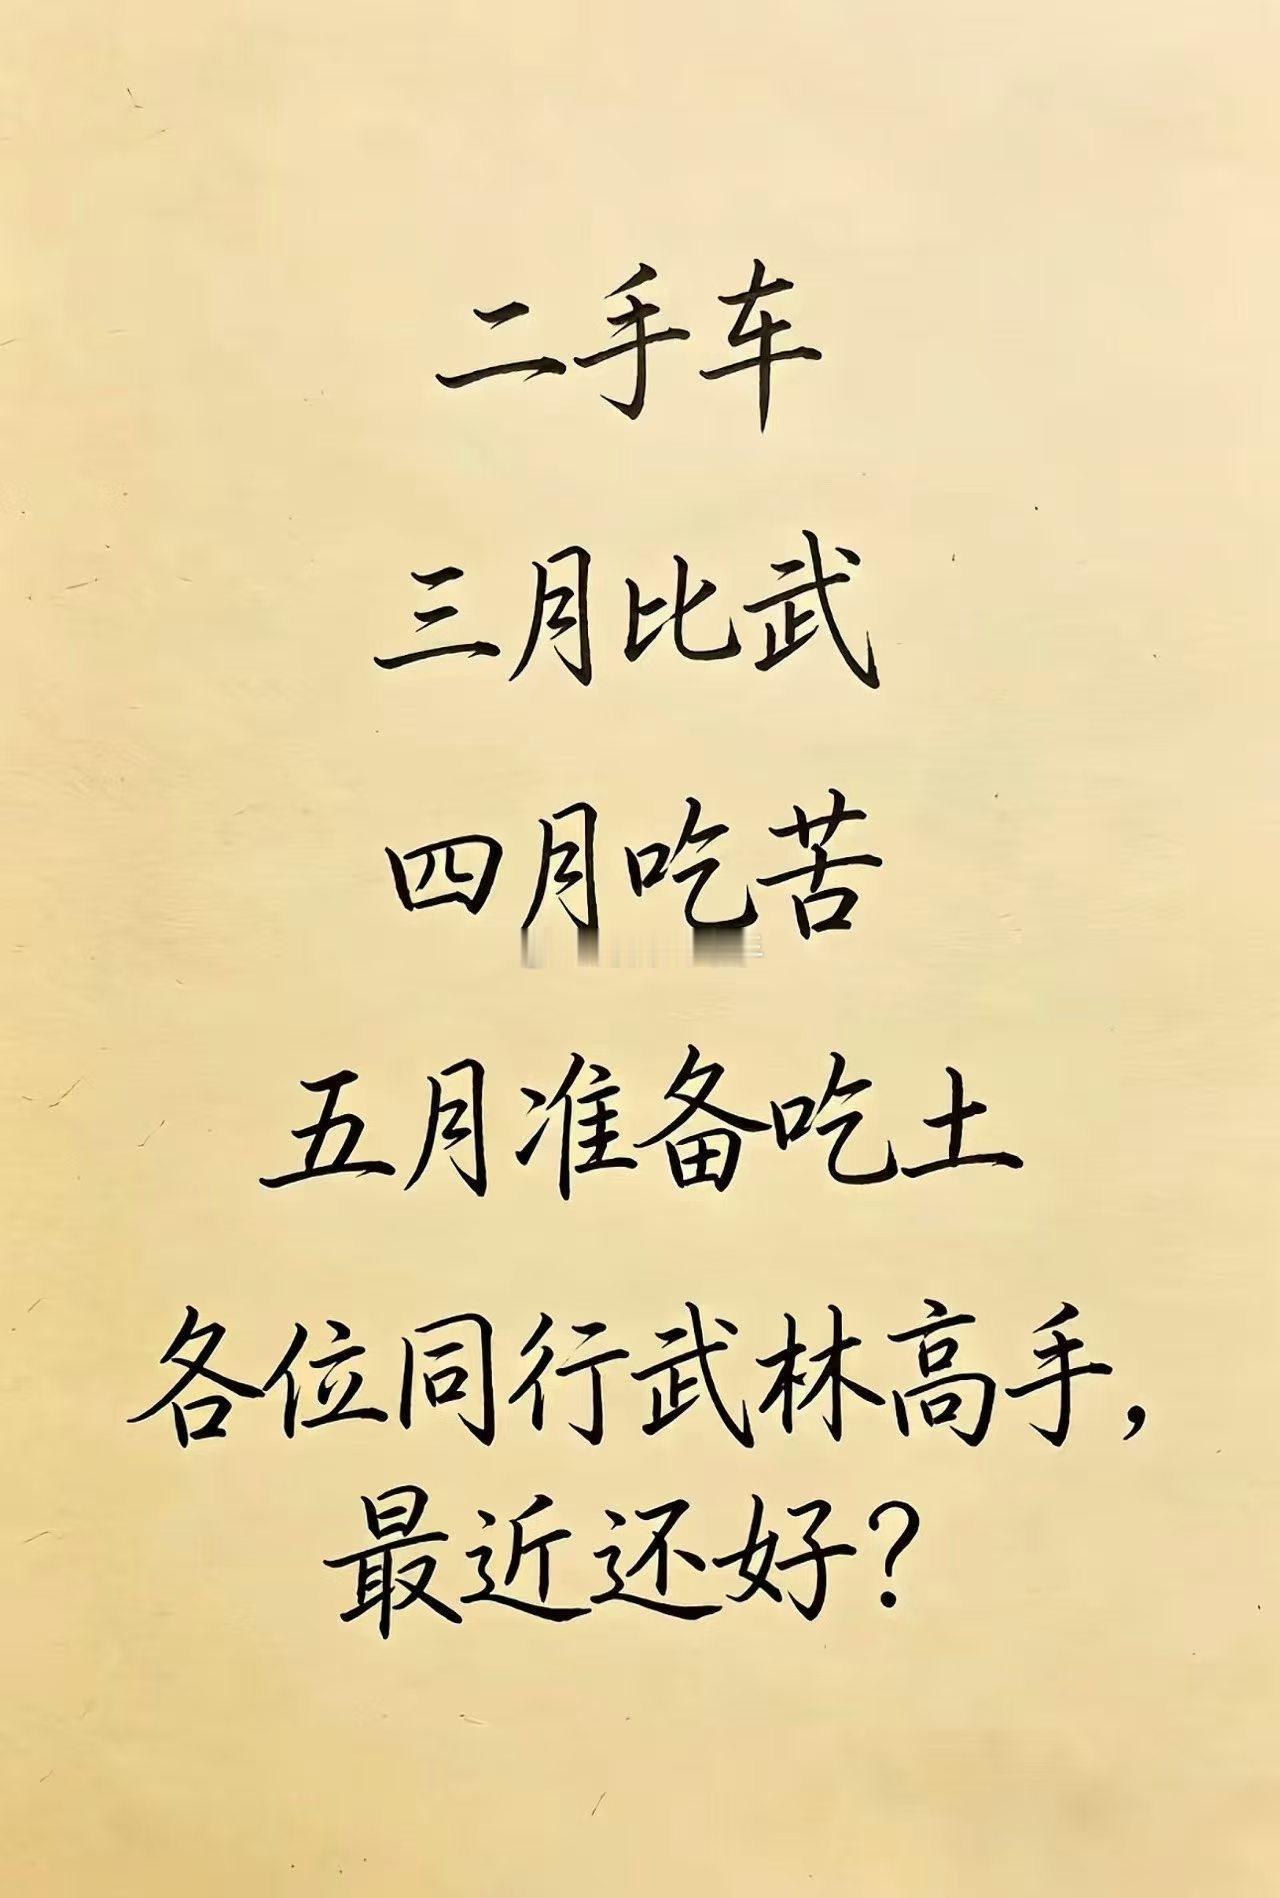 二手车
三月比武
四月吃苦
五月准备吃土
各位同行武林高手，
最近还好？